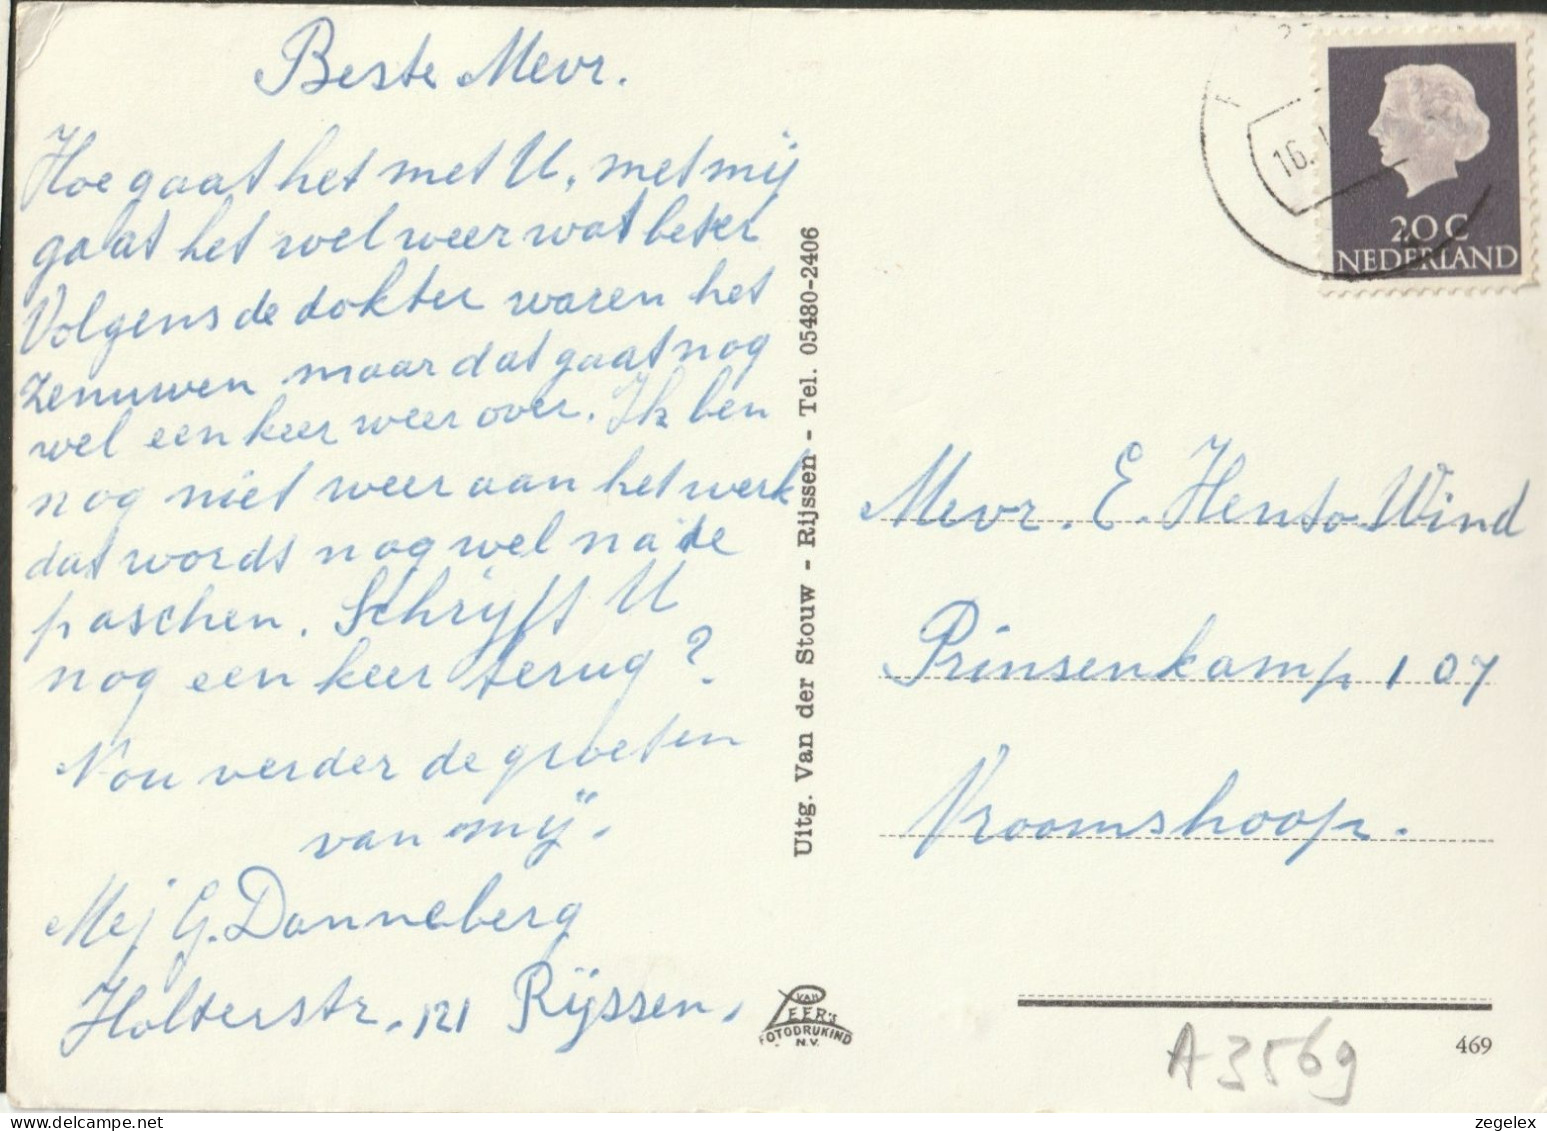 Beste Mevr.
Hoe gaat het met U, met mij
gaat het wel weer wat beter
Volgens de dokter waren het
zenuwen maar dat gaat nog
wel een keer weer over. Ik ben
nog niet weer aan het werk
dat wordt nog wel na de
paschen. Schrijft U
nog een keer terug?
Nou verder de groeten
van mij.
Mej G. Danneberg
Holterstr. 121 Rijssen.
Uitg. Van der Stouw - Rijssen - Tel. 05480-2406
VAN
LEER'S
FOTODRUKIND
N.V.
16.
20 C
NEDERLAND
Mevr. E. Henso Wind
Prinsenkamp 107
Vroomshoop.
469
A3569
zegelex